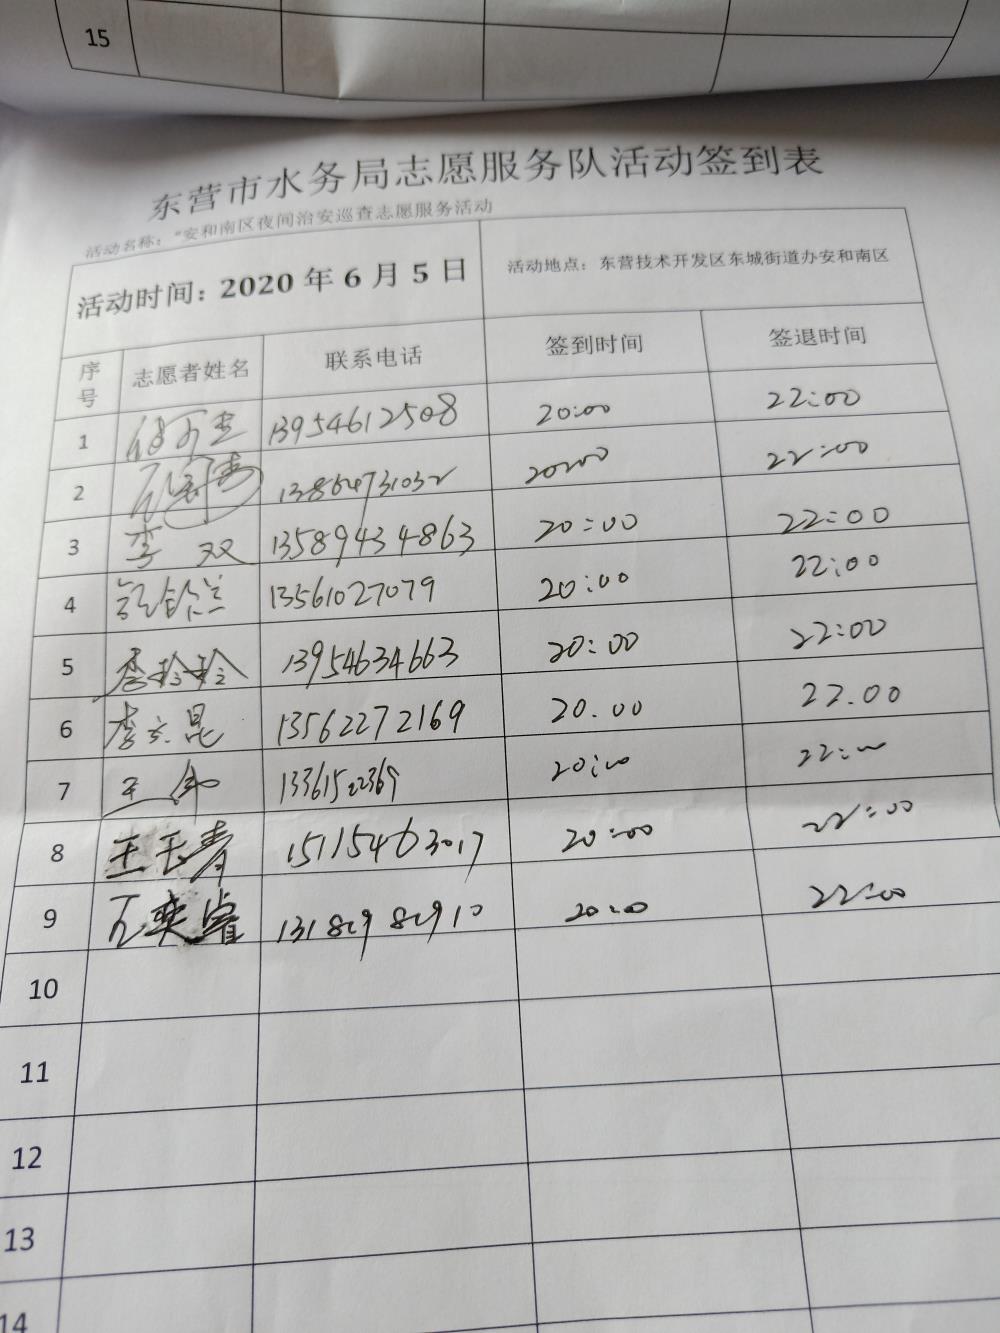 15
东营市水务局志愿服务队活动签到表
活动名称：“安和南区夜间治安巡查志愿服务活动
活动时间：2020 年 6 月 5 日 活动地点：东营技术开发区东城街道办安和南区
序号 志愿者姓名 联系电话 签到时间 签退时间
1 13954612508 20:00 22:00
2 22:00
3 李双 13589434863 20:00 22:00
4 13561027079 20:00 22:00
5 李玲玲 13954634663 20:00 22:00
6 李立昆 13562272169 20.00 22.00
7 20:00 22:00
8 王玉青 15115463017 20:00 22:00
9 石奕睿 20:00 22:00
10
11
12
13
14